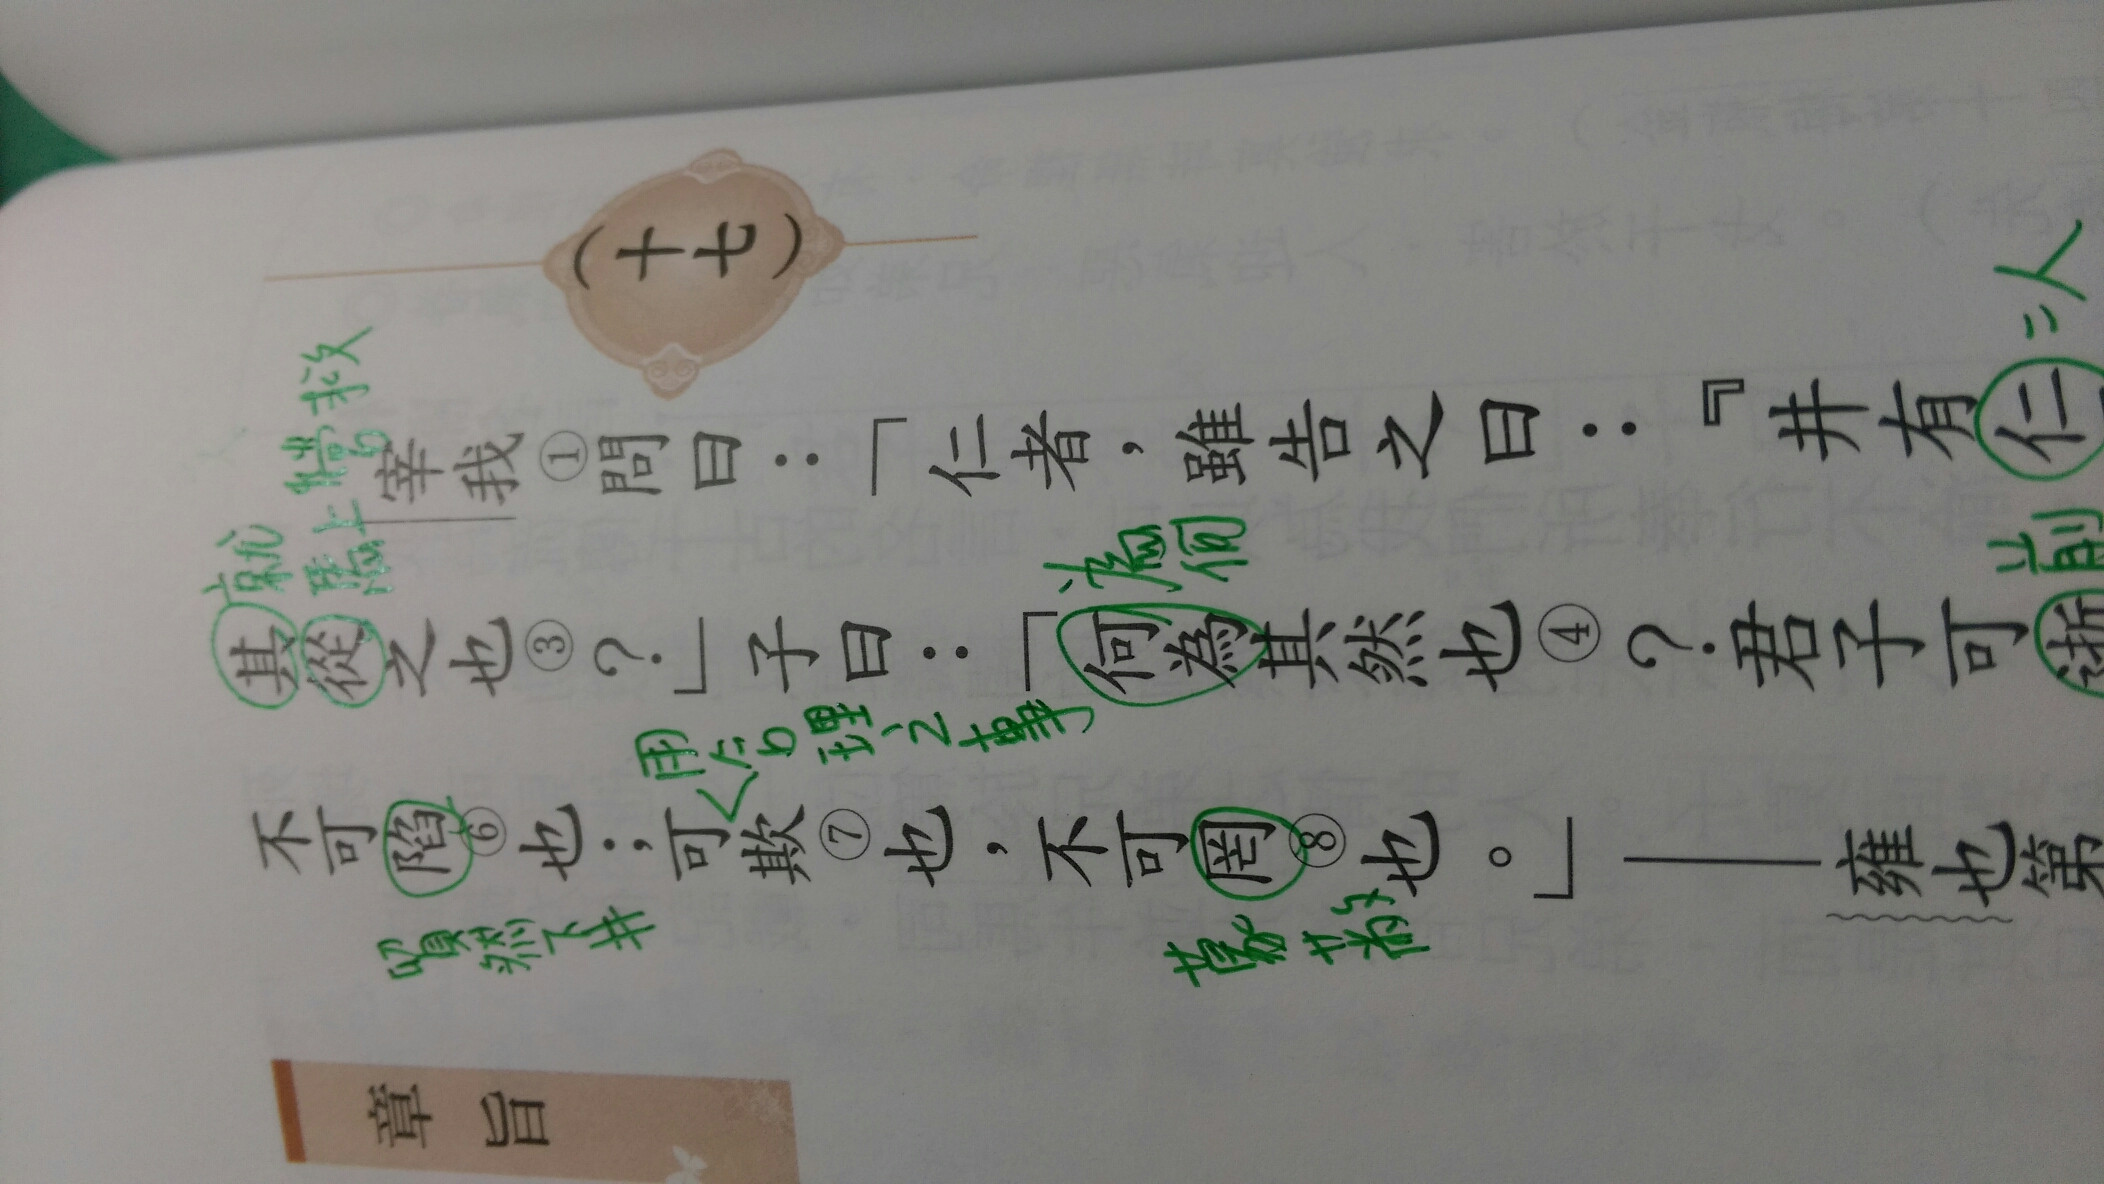 (十七)
二人
宰我①問曰：「仁者，雖告之曰：『井有仁
就
隨上
當
求救
其從之也③？」子曰：「何為其然也④？君子可逝
為何
前
用合理之事
不可陷⑥也；可欺⑦也，不可罔⑧也。」——雍也第
貿然下井
蒙蔽
章旨